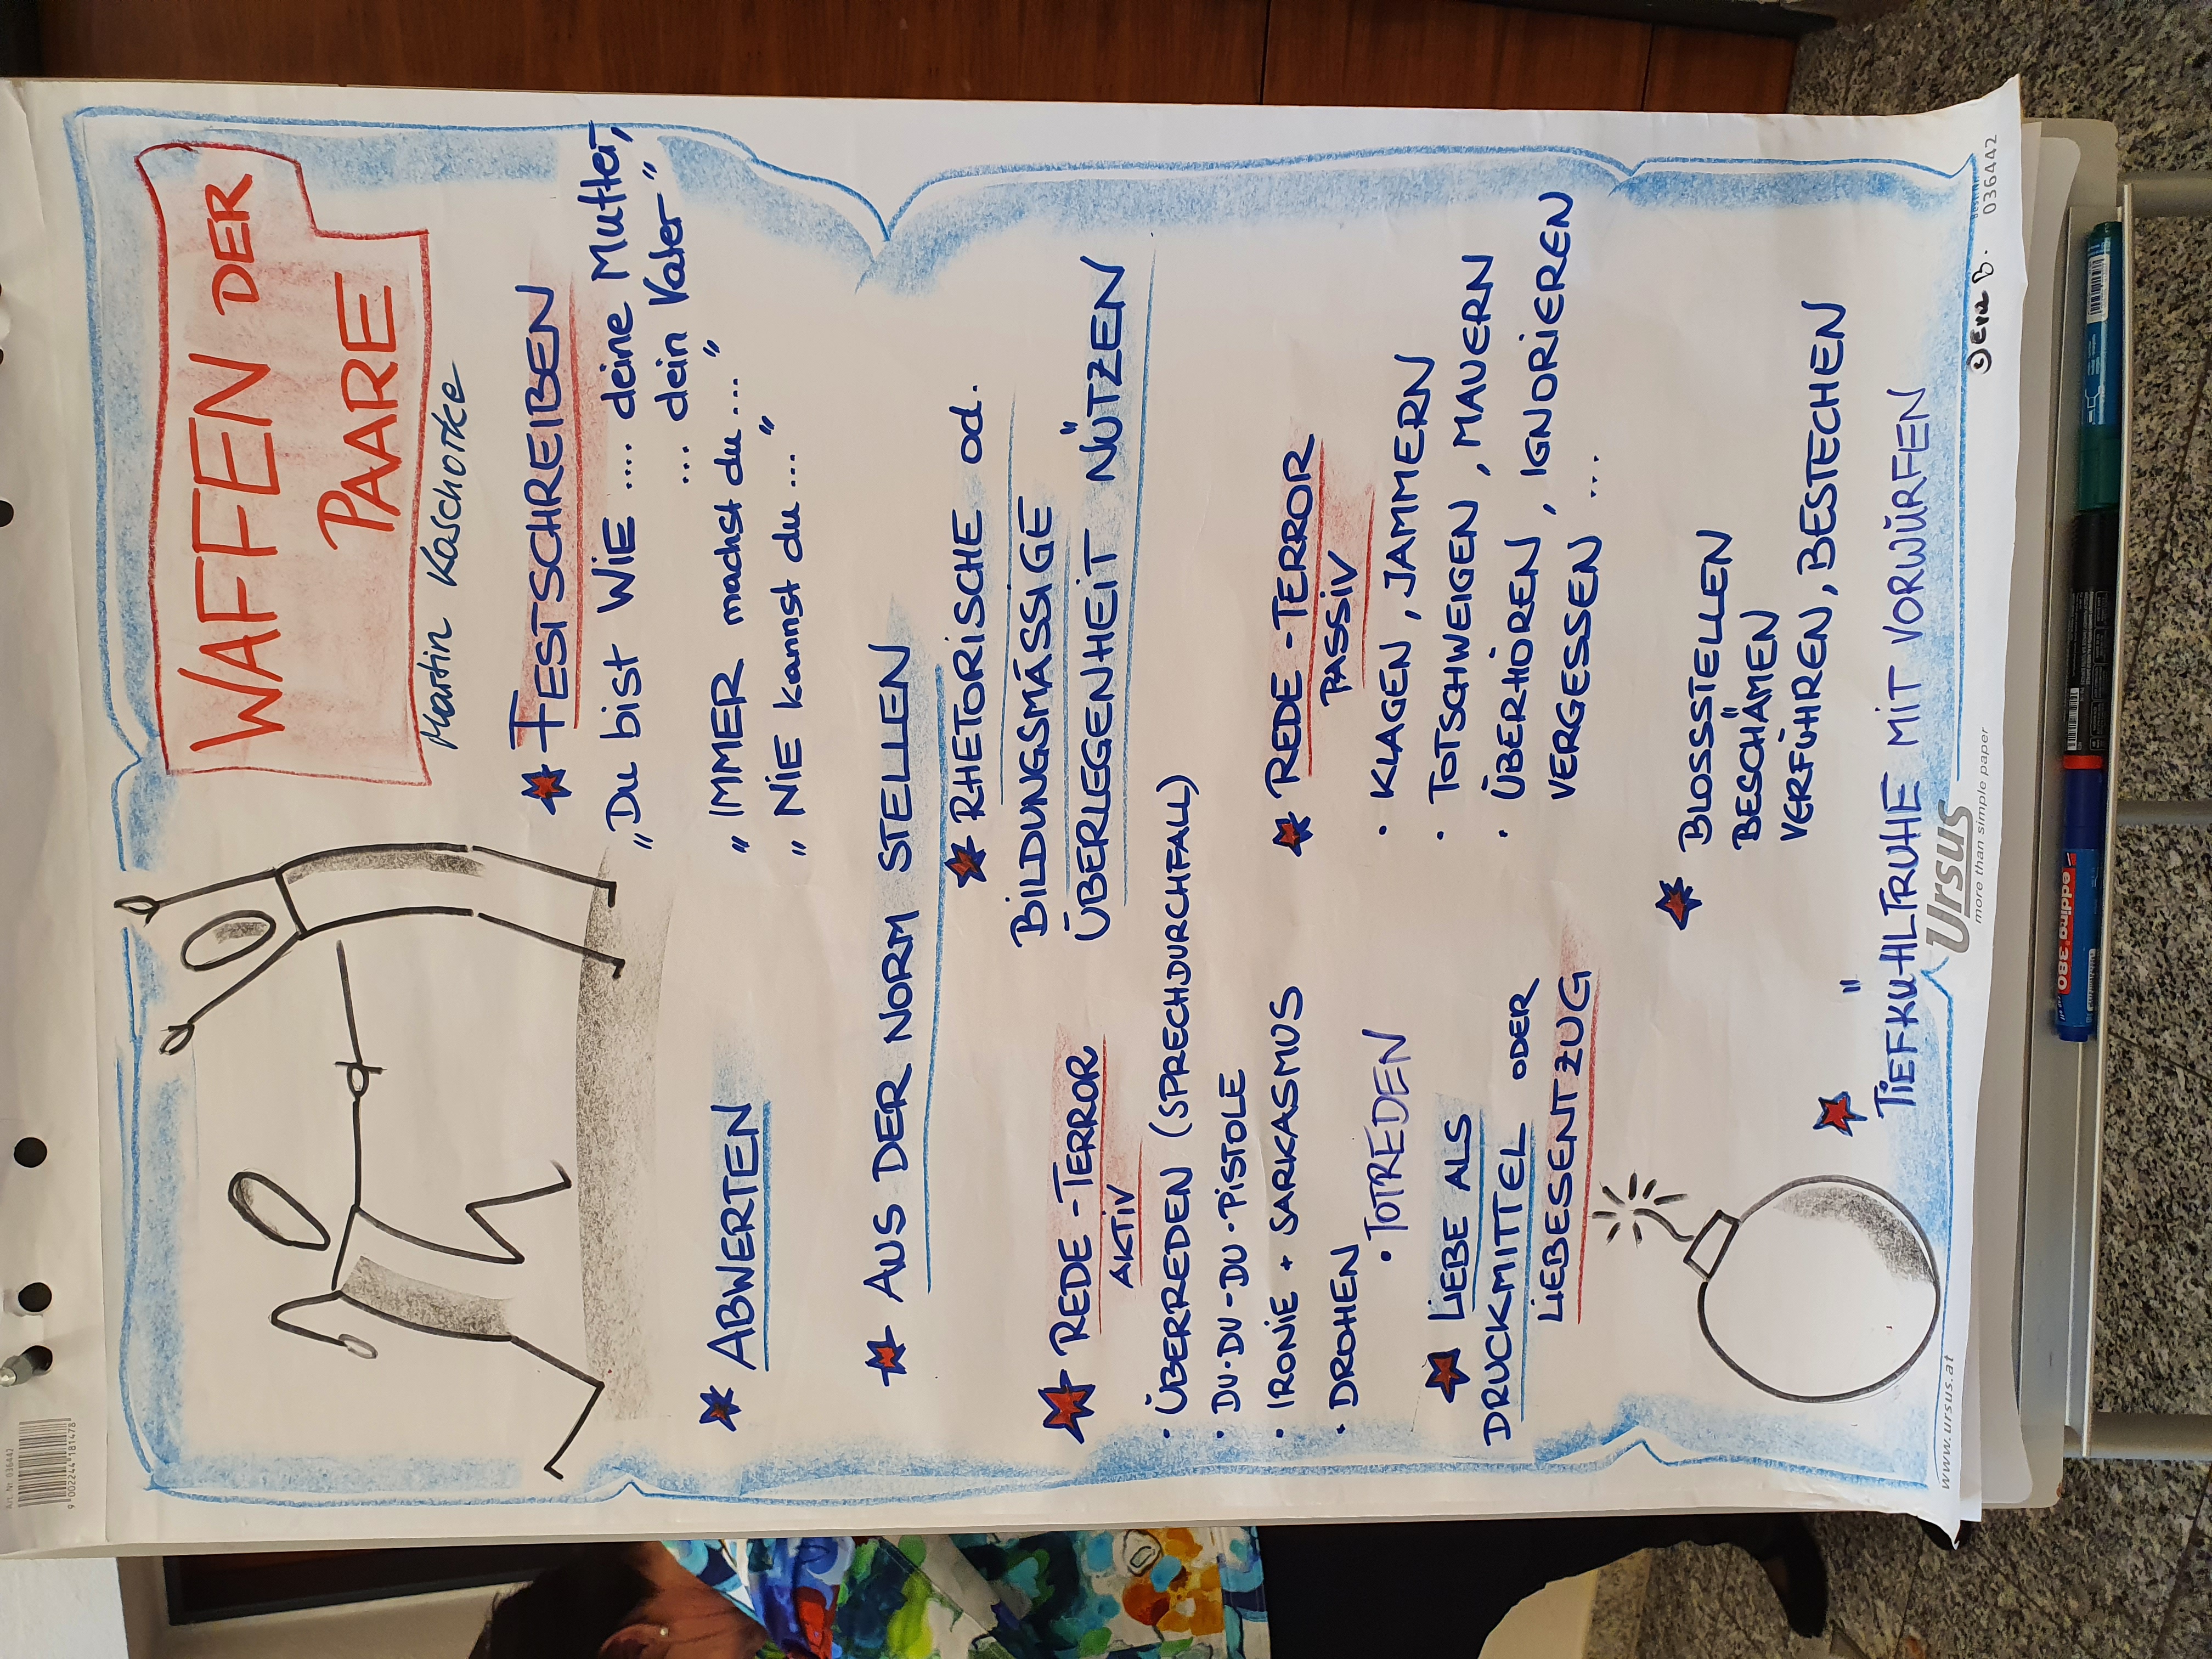 Art. Nr. 036442
9 002244 181478
WAFFEN DER
PAARE
Martin Koschorke
FESTSCHREIBEN
„Du bist WIE .... deine Mutter,
... dein Vater"
„IMMER machst du ..."
„NIE kannst du ..."
ABWERTEN
AUS DER NORM STELLEN
RHETORISCHE od.
BILDUNGSMÄSSIGE
ÜBERLEGENHEIT NÜTZEN
REDE-TERROR
AKTIV
· ÜBERREDEN (SPRECHDURCHFALL)
· DU-DU-DU-PISTOLE
· IRONIE + SARKASMUS
· DROHEN
· TOTREDEN
REDE-TERROR
PASSIV
· KLAGEN, JAMMERN
· TOTSCHWEIGEN, MAUERN
· ÜBERHÖREN, IGNORIEREN
VERGESSEN ...
LIEBE ALS
DRUCKMITTEL ODER
LIEBESENTZUG
BLOSSSTELLEN
BESCHÄMEN
VERFÜHREN, BESTECHEN
TIEFKÜHLTRUHE MIT VORWÜRFEN
© Eva B.
www.ursus.at
Ursus
more than simple paper
036442
edding 380